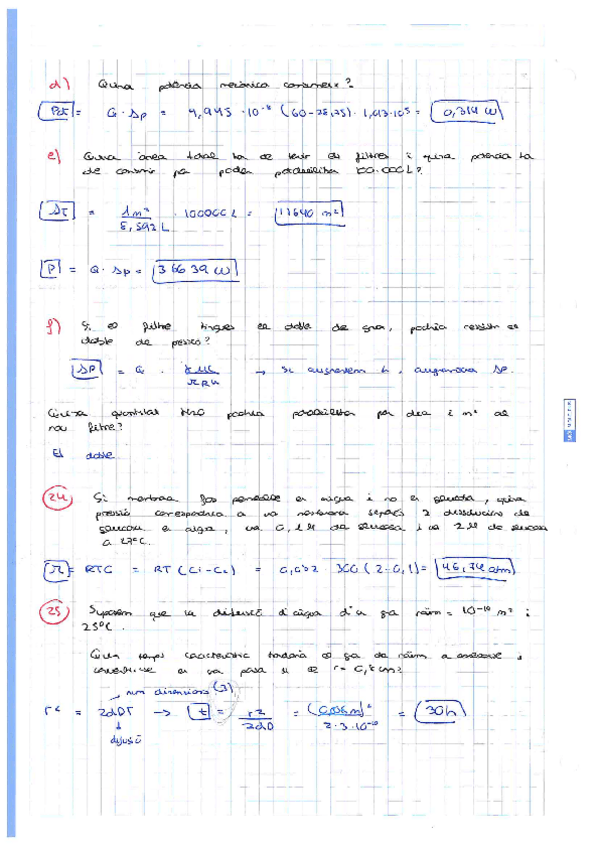 d) Quina potència mecànica consumeix?
Pot = Q · Δp = 4,945 · 10⁻⁸ (60 - 28,75) · 1,013·10⁵ = 0,314 W
e) Quina àrea total ha de tenir el filtre i quina potència ha
de consumir per poder potabilitzar 100.000 L?
= 1m² / 8,592 L · 100000 L = 11640 m²
P = Q · Δp = 3663,9 W
f) Si el filtre tingués el doble de gruix, podria resistir el
doble de pressió?
ΔP = Q · → si augmentem h, augmentarà ΔP.
Quina quantitat H2O podria potabilitzar per dia i m² el
nou filtre?
El doble
24 Si membrana permeable en aigua i no en sucrosa, quina
pressió correspondria a una membrana separa 2 dissolucions de
sucrosa en aigua, una 0,1 M de sucrosa i una 2 M de sucrosa
a 27°C.
π = RTC = RT (Ci - Cc) = 0,082 · 300 (2 - 0,1) = 46,74 atm
25 Suposem que la difusió d'aigua d'un gra raïm = 10⁻¹⁰ m² i
25°C.
Quin temps característic tardaria el gra de raïm a assecar-se i
convertir-se en una pansa si el r = 0,8 cm?
num dimensions (3)
r² = 2dDT → t = r² / 2dD = / 2·3·10⁻¹⁰ = 30h
difusió